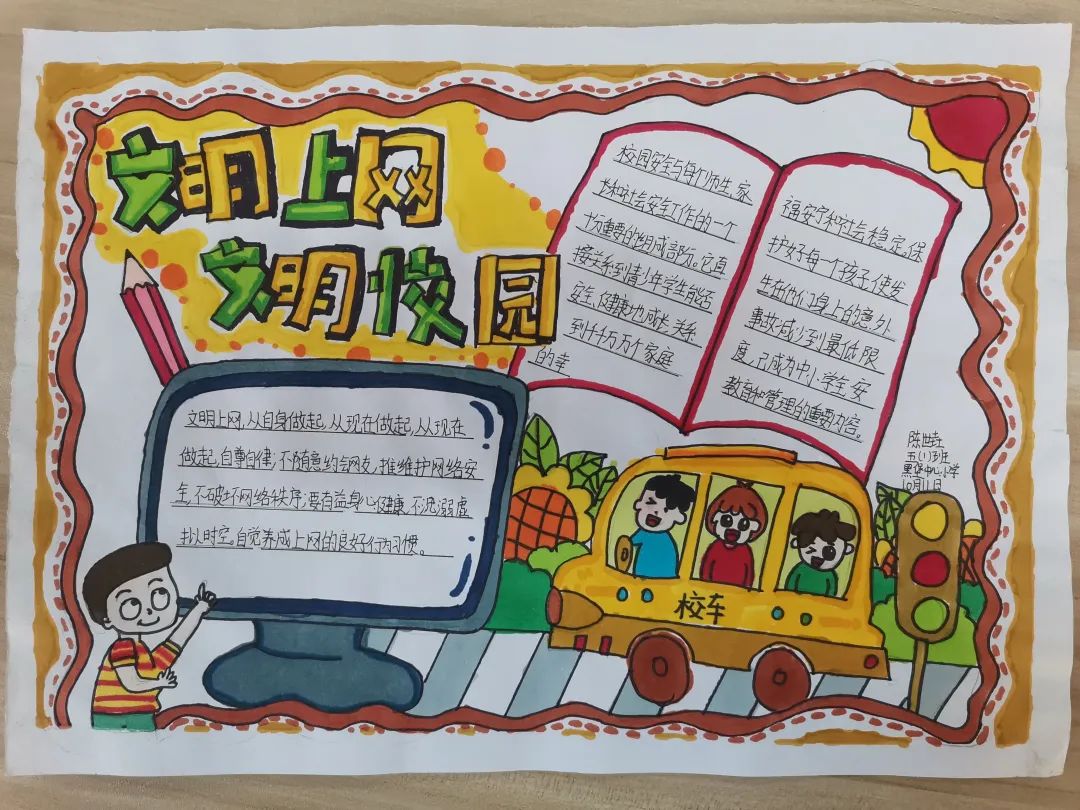 文明上网
文明校园
文明上网,从自身做起,从现在做起,从现在
做起,自尊自律,不随意约会网友,维护网络安
全,不破坏网络秩序;要有益身心健康,不沉溺虚
拟时空。自觉养成上网的良好行为习惯。
校园安全与每个师生、家
长和社会安全工作的一个
十分重要的组成部份。它直
接关系到青少年学生能否
安全、健康地成长,关系
到千千万万个家庭
的幸
福安宁和社会稳定,保
护好每一个孩子,使发
生在他们身上的意外
事故减少到最低限
度,已成为中小学生安
教育和管理的重要内容。
五(1)班
中心小学
10月11日
校车